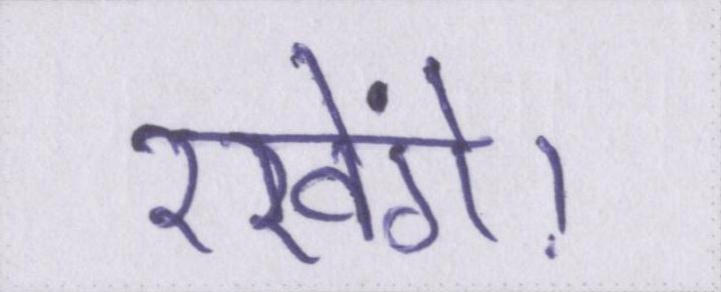 रखेंगे।